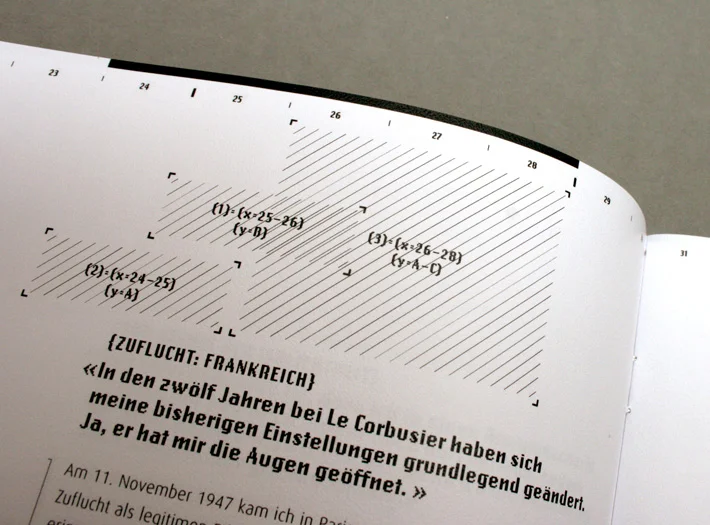 23 24 25 26 27 28 29 31
(1)=(x=25–26)
(y=B)
(3)=(x=26–28)
(y=A–C)
(2)=(x=24–25)
(y=A)
{ZUFLUCHT: FRANKREICH}
«In den zwölf Jahren bei Le Corbusier haben sich
meine bisherigen Einstellungen grundlegend geändert.
Ja, er hat mir die Augen geöffnet. »
Am 11. November 1947 kam ich in
Zuflucht als legitimen